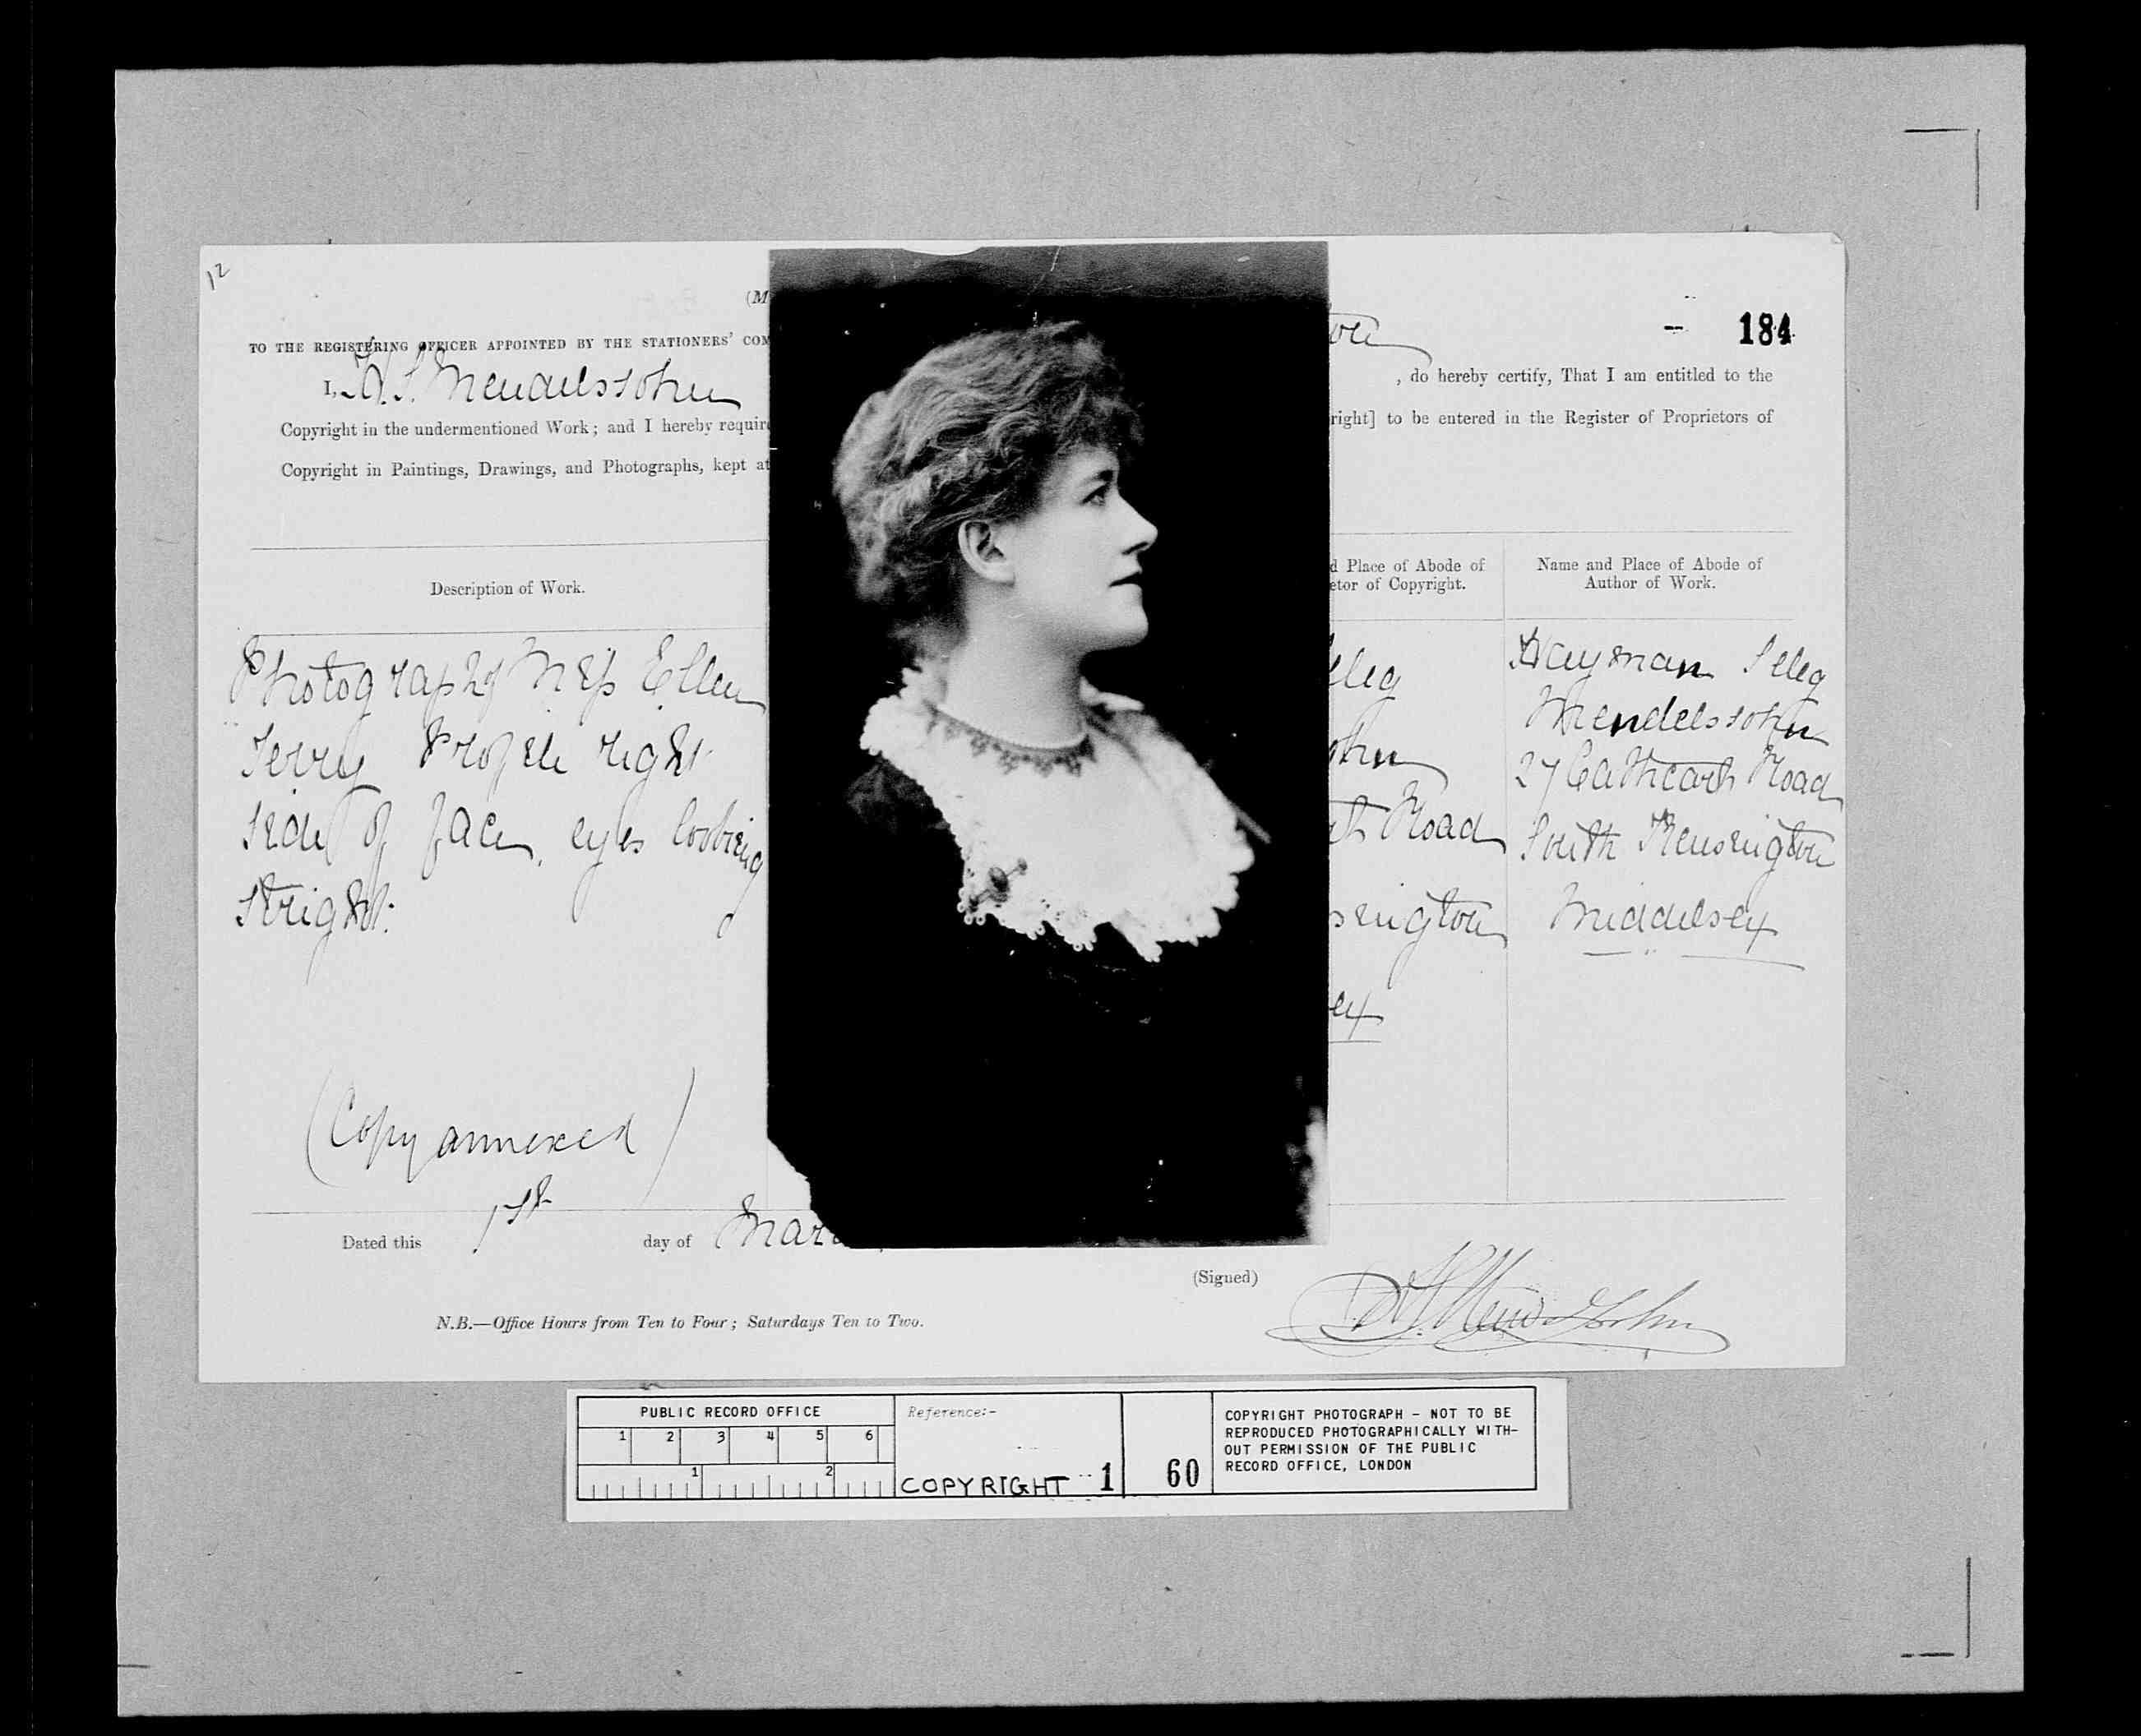 12
(M
184
TO THE REGISTERING OFFICER APPOINTED BY THE STATIONERS' COM
I, H. S. Mendelssohn , do hereby certify, That I am entitled to the
Copyright in the undermentioned Work; and I hereby require right] to be entered in the Register of Proprietors of
Copyright in Paintings, Drawings, and Photographs, kept at
Description of Work.
d Place of Abode of
etor of Copyright.
Name and Place of Abode of
Author of Work.
Photograph of Miss Ellen
Terry Profile right
side of face, eyes looking
streight.
(Copy annexed)
elleg
ohn
Road
sington
ex
Hayman Selleg
Mendelssohn
27 Cathcart Road
South Kensington
Middelsex
Dated this 1st day of Mar
(Signed) H S Mendelssohn
N.B.—Office Hours from Ten to Four; Saturdays Ten to Two.
PUBLIC RECORD OFFICE
1 2 3 4 5 6
1 2
Reference:-
COPYRIGHT 1 60
COPYRIGHT PHOTOGRAPH - NOT TO BE
REPRODUCED PHOTOGRAPHICALLY WITH-
OUT PERMISSION OF THE PUBLIC
RECORD OFFICE, LONDON